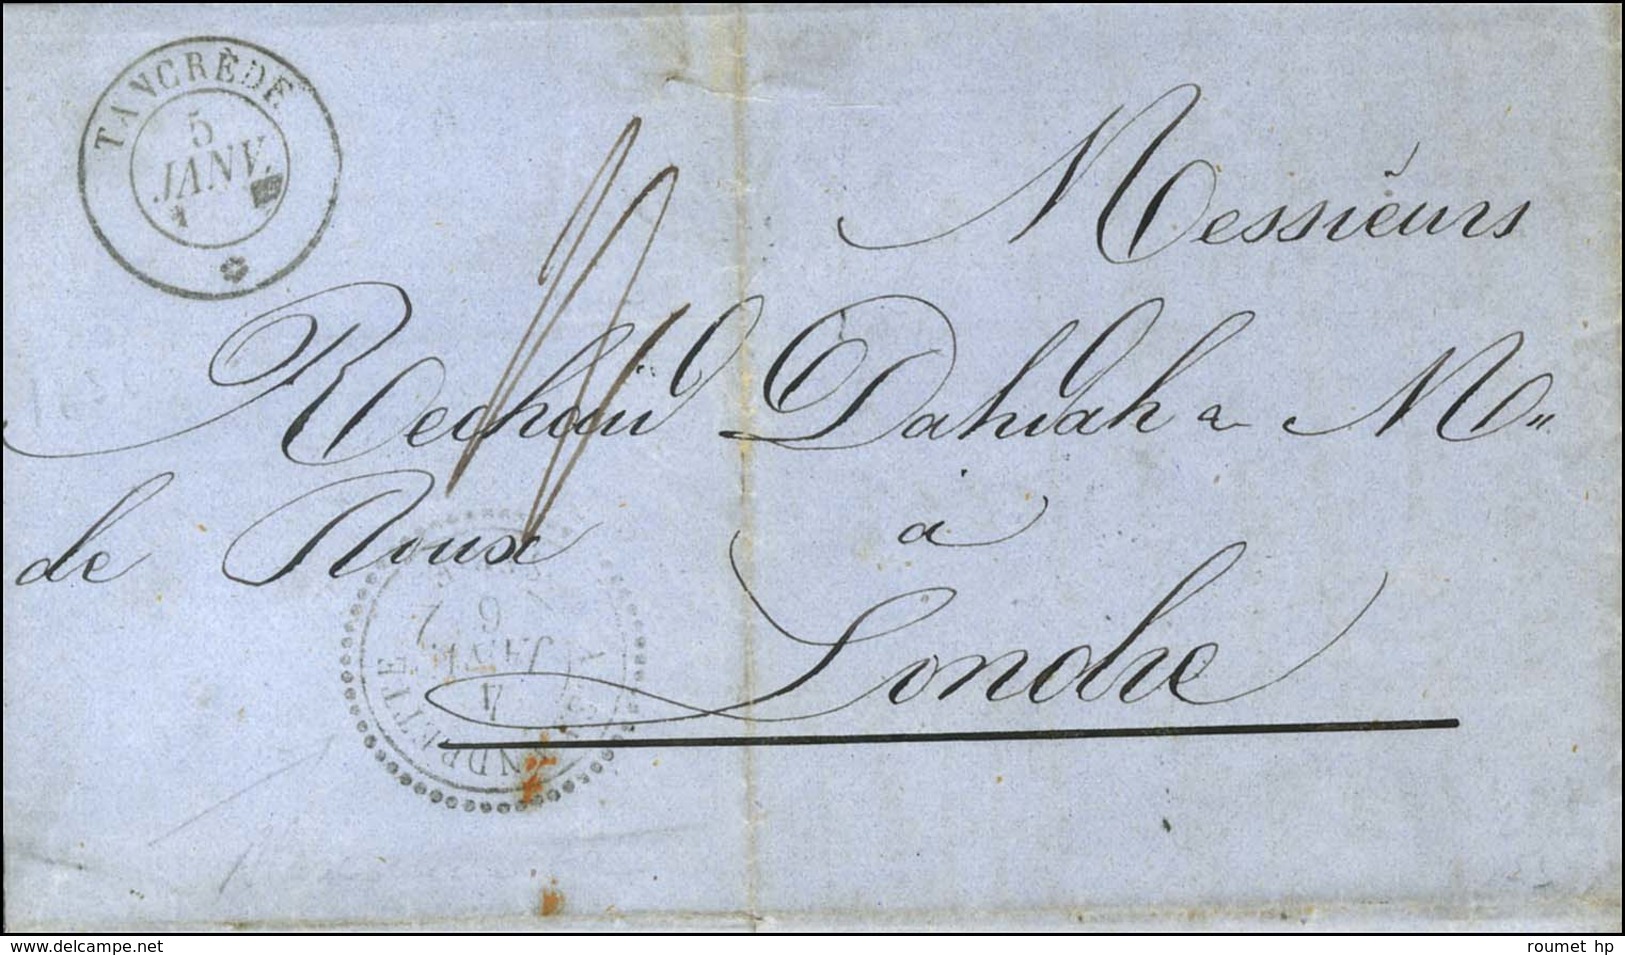 TANCRÈDE
5
JANV.
Messieurs
Rechou Dahdah & M"
de Roux à
Londre
ALEXANDRETTE
6
JANV.
delcampe.net
roumet hp